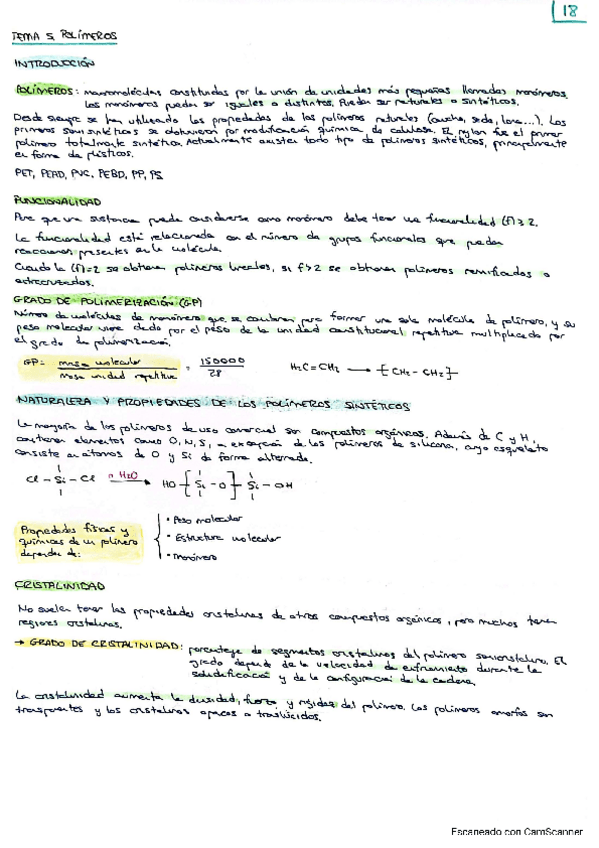 18
TEMA 5. POLÍMEROS
INTRODUCCIÓN
POLÍMEROS: macromoléculas constituidas por la unión de unidades más pequeñas llamadas monómeros.
Los monómeros pueden ser iguales o distintos. Pueden ser naturales o sintéticos.
Desde siempre se han utilizado las propiedades de los polímeros naturales (caucho, seda, lana...). Los
primeros semisintéticos se obtuvieron por modificación química de celulosa. El nylon fue el primer
polímero totalmente sintético. Actualmente existen todo tipo de polímeros sintéticos, principalmente
en forma de plásticos.
PET, PEAD, PVC, PEBD, PP, PS
FUNCIONALIDAD
Para que una sustancia pueda considerarse como monómero debe tener una funcionalidad (f) ≥ 2.
La funcionalidad está relacionada con el número de grupos funcionales que puedan
reaccionar presentes en la molécula.
Cuando la (f)=2 se obtienen polímeros lineales, si f>2 se obtienen polímeros ramificados o
entrecruzados.
GRADO DE POLIMERIZACIÓN (GP)
Número de moléculas de monómero que se combinan para formar una sola molécula de polímero, y su
peso molecular viene dado por el peso de la unidad constitucional repetitiva multiplicado por
el grado de polimerización.
GP = masa molecular / masa unidad repetitiva = 150000 / 28
H₂C=CH₂ → [CH₂-CH₂]
NATURALEZA Y PROPIEDADES DE LOS POLÍMEROS SINTÉTICOS
La mayoría de los polímeros de uso comercial son compuestos orgánicos. Además de C y H,
contienen elementos como O, N, S, a excepción de los polímeros de silicona, cuyo esqueleto
consiste en átomos de O y Si de forma alternada.
Cl - Si - Cl n H₂O → HO [Si - O] Si - OH
Propiedades físicas y
químicas de un polímero
dependen de:
• Peso molecular
• Estructura molecular
• Monómero
CRISTALINIDAD
No suelen tener las propiedades cristalinas de otros compuestos orgánicos, pero muchos tienen
regiones cristalinas.
→ GRADO DE CRISTALINIDAD: porcentaje de segmentos cristalinos del polímero semicristalino. El
grado depende de la velocidad de enfriamiento durante la
solidificación y de la configuración de la cadena.
La cristalinidad aumenta la densidad, fuerza y rigidez del polímero. Los polímeros amorfos son
transparentes y los cristalinos opacos o traslúcidos.
Escaneado con CamScanner